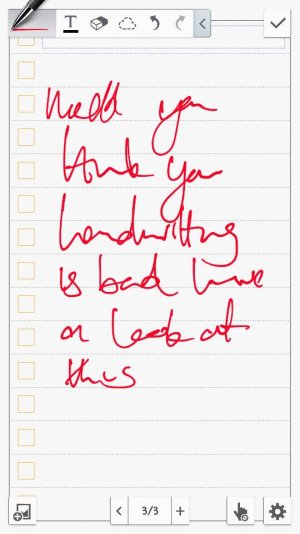 T
you
think you
handwriting
is bad have
a look at
this
3/3